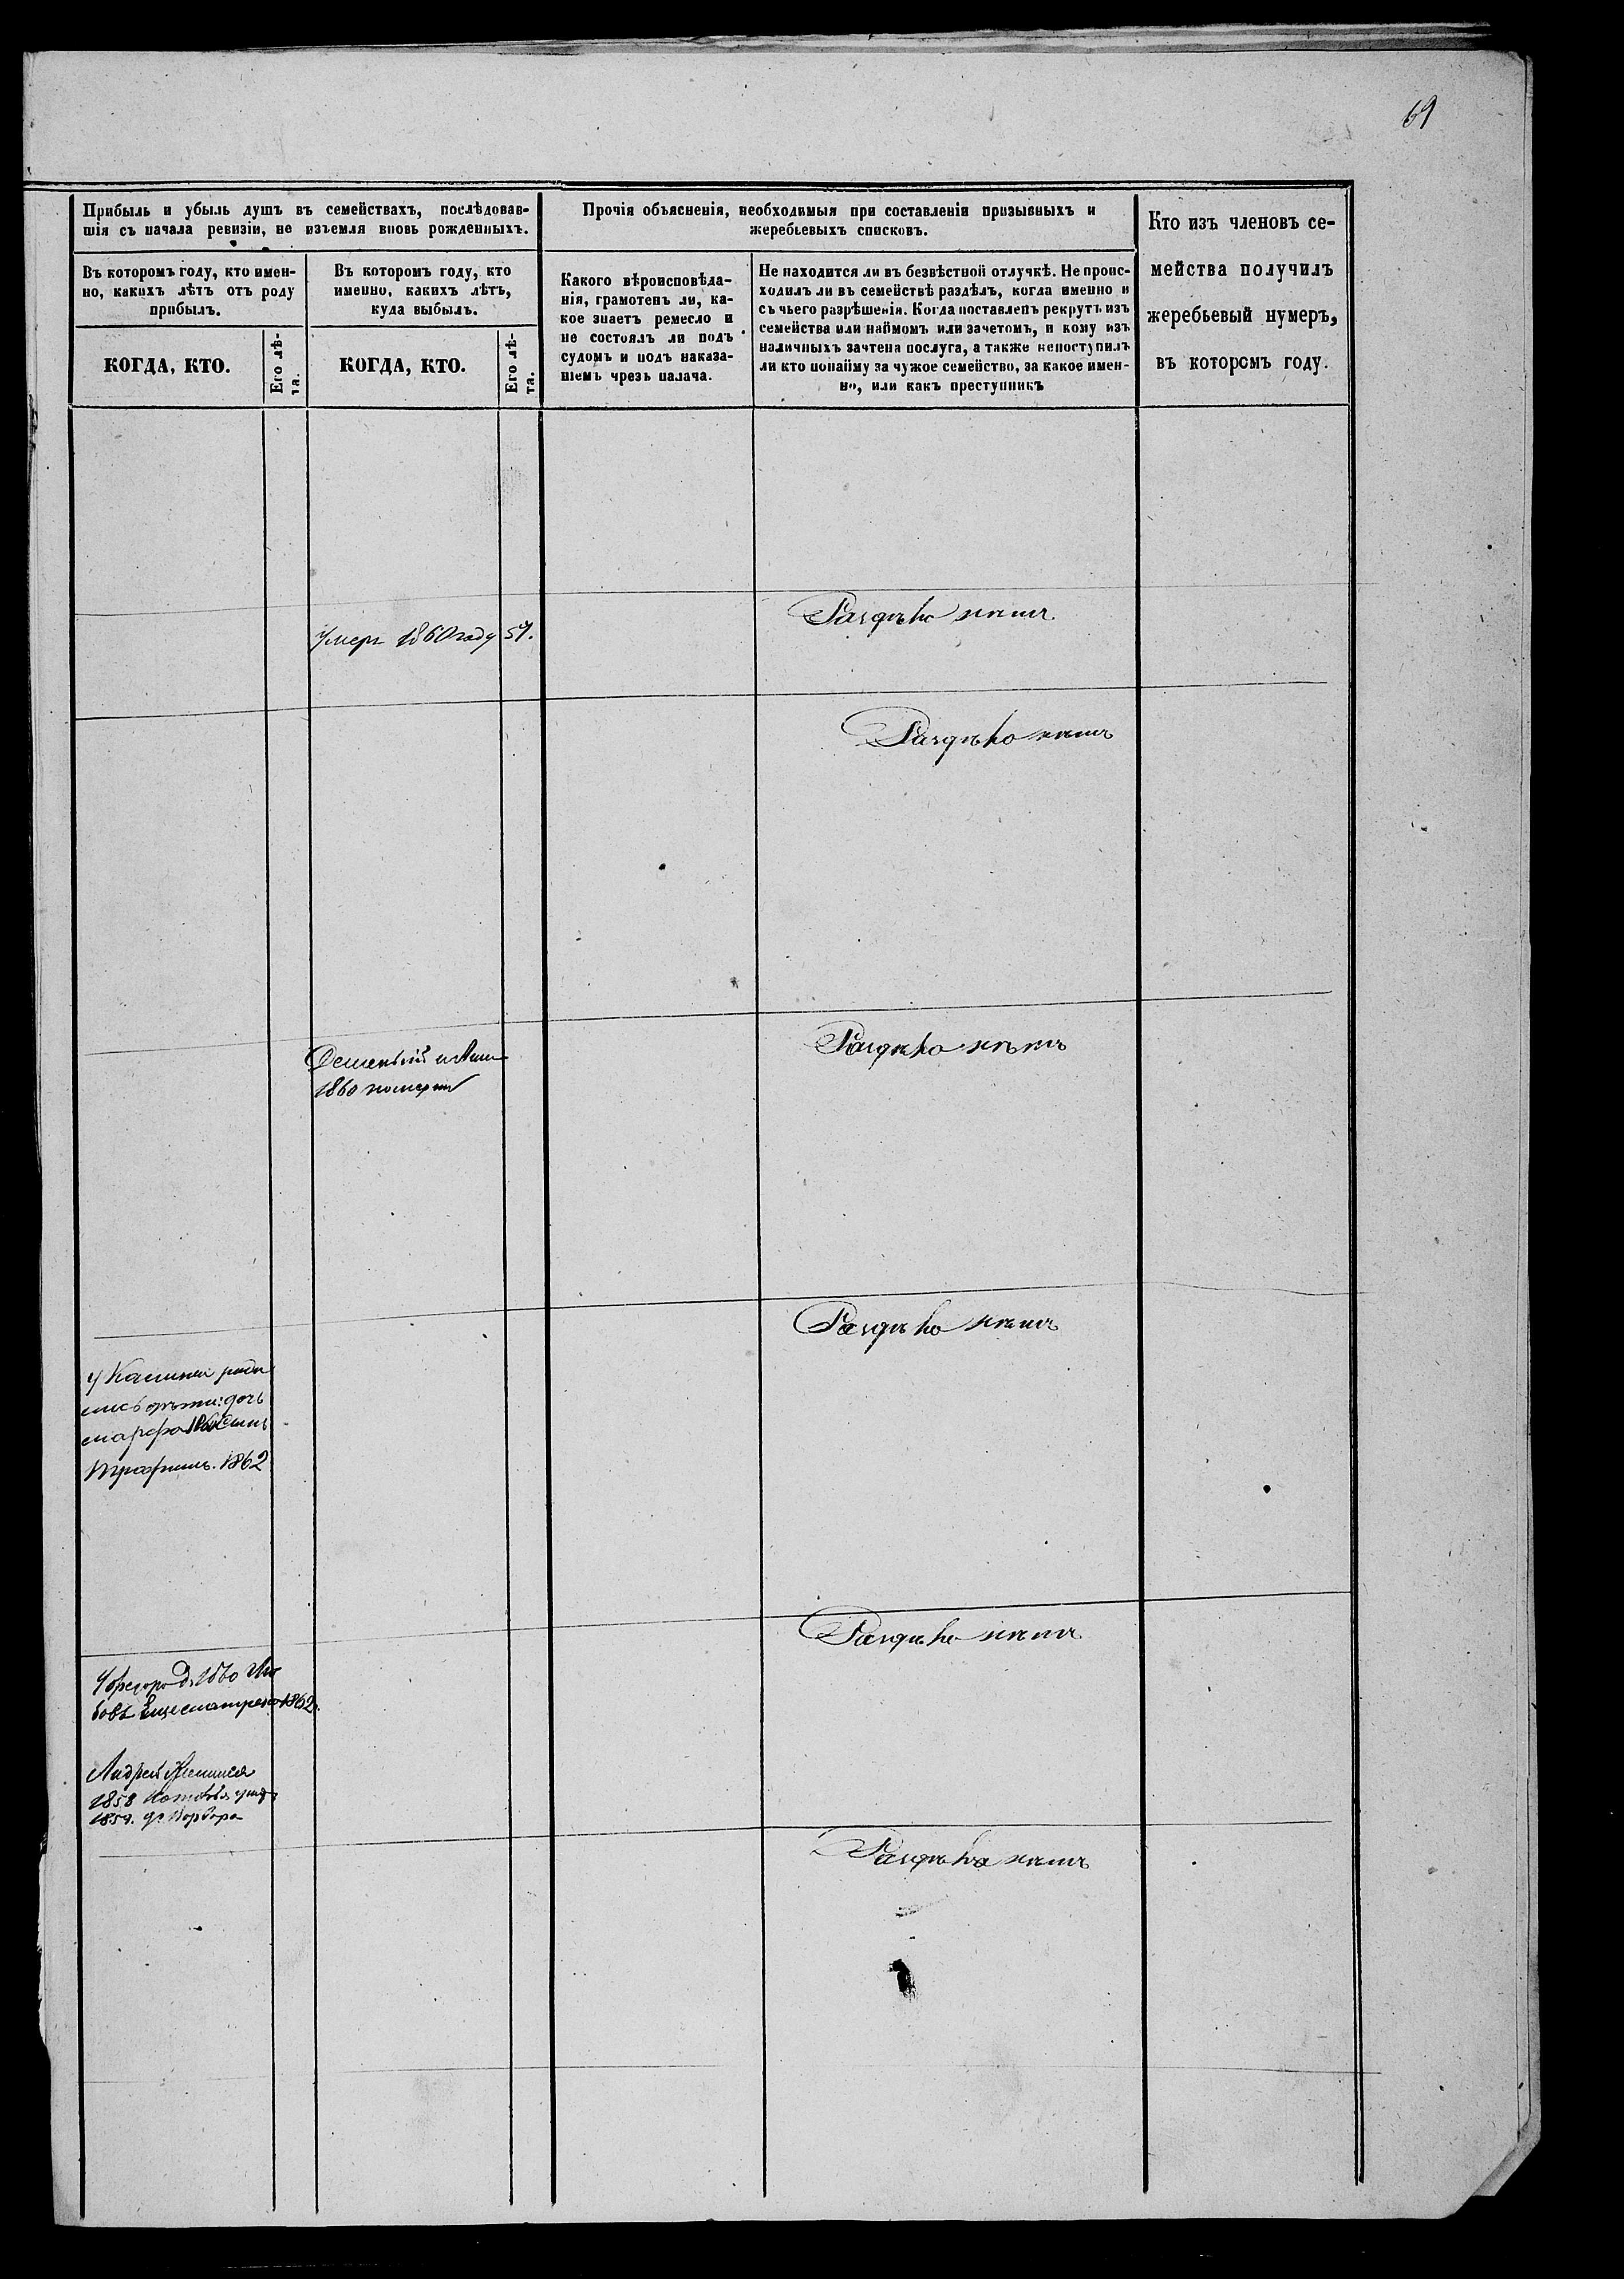 69
Прибыль и убыль душъ въ семействахъ, послѣдовав-
шія съ начала ревизіи, не изъемля вновь рожденныхъ.
Прочія объясненія, необходимыя при составленіи призывныхъ и
жеребьевыхъ списковъ.
Кто изъ членовъ се-
мейства получилъ
жеребьевый нумеръ,
въ которомъ году.
Въ которомъ году, кто имен-
но, какихъ лѣтъ отъ роду
прибылъ.
Въ которомъ году, кто
именно, какихъ лѣтъ,
куда выбылъ.
Какого вѣроисповѣда-
нія, грамотенъ ли, ка-
кое знаетъ ремесло и
не состоялъ ли подъ
судомъ и подъ наказа-
ніемъ чрезъ палача.
Не находится ли въ безвѣстной отлучкѣ. Не проис-
ходилъ ли въ семействѣ раздѣлъ, когда именно и
съ чьего разрѣшенія. Когда поставленъ рекрутъ изъ
семейства или наймомъ или зачетомъ, и кому изъ
наличныхъ зачтена послуга, а также непоступилъ
ли кто понайму за чужое семейство, за какое имен-
но, или какъ преступникъ
КОГДА, КТО.
Его лѣ-
та.
КОГДА, КТО.
Его лѣ-
та.
Раздѣла нѣтъ
Умеръ 1860 году 57.
Раздѣла нѣтъ
Раздѣла нѣтъ
1860 померли
Раздѣла нѣтъ
У Калины роди
лись дѣти: дочь
марфа 1860 Сынъ
Трофимъ. 1862
Раздѣла нѣтъ
1860
1862
Андрей Женился
1858
1859. дочь Варвара
Раздѣла нѣтъ